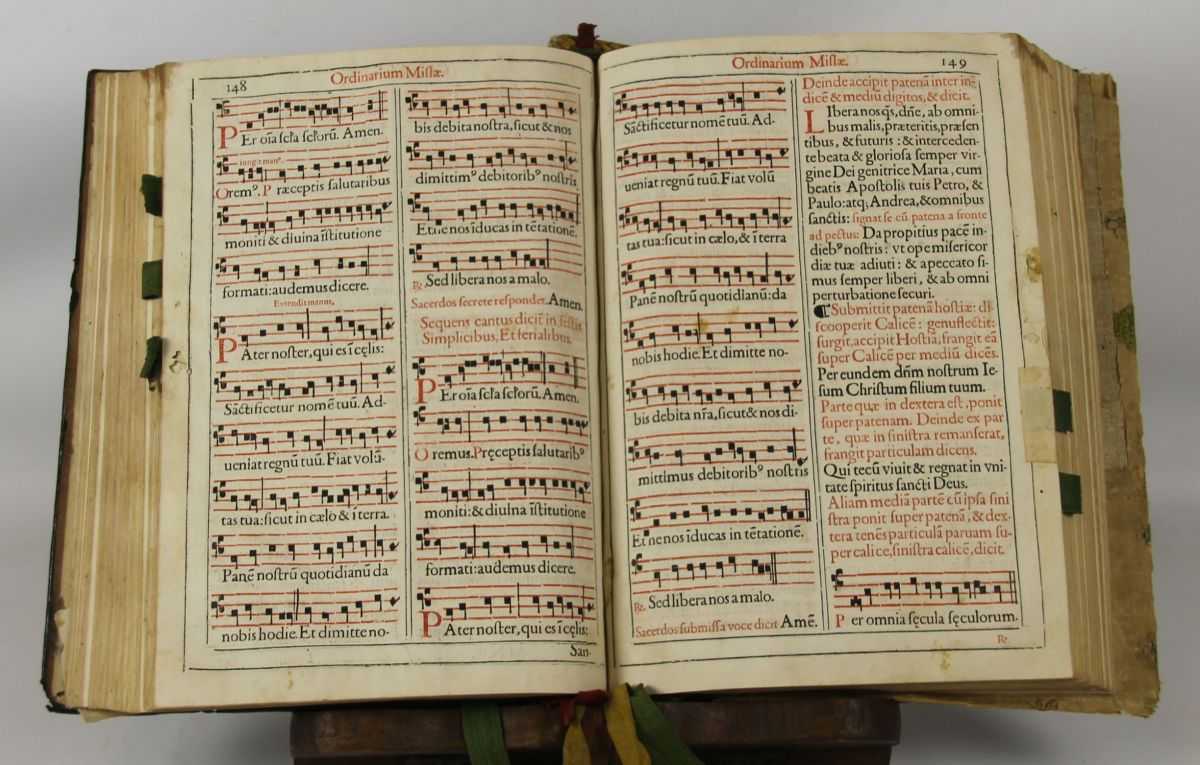 148
Ordinarium Missæ.
PEr oĩa scła scłorũ. Amen.
iungit man⁹.
Orem⁹. Præceptis salutaribus
moniti & diuina ĩstitutione
formati: audemus dicere.
Extendit manus,
PAter noster, qui es ĩ cęlis:
Sãctificetur nomẽ tuũ. Ad-
ueniat regnũ tuũ. Fiat volũ-
tas tua: sicut in cælo & ĩ terra.
Panẽ nostrũ quotidianũ da
nobis hodie. Et dimitte no-
bis debita nostra, sicut & nos
dimittim⁹ debitorib⁹ nostris
Et ne nos ĩducas in tẽtationẽ.
℞. Sed libera nos a malo.
Sacerdos secrete respondet. Amen.
Sequens cantus dicit in festis
Simplicibus, Et ferialibus.
PEr oĩa scła scłorũ. Amen.
Oremus. Pręceptis salutarib⁹
moniti: & diuina ĩstitutione
formati: audemus dicere.
PAter noster, qui es ĩ cęlis:
San-
Ordinarium Missæ.
149
Sãctificetur nomẽ tuũ. Ad-
ueniat regnũ tuũ. Fiat volũ
tas tua: sicut in cælo, & ĩ terra
Panẽ nostrũ quotidianũ: da
nobis hodie. Et dimitte no-
bis debita nr̃a, sicut & nos di-
mittimus debitorib⁹ nostris
Et ne nos ĩducas in tẽtationẽ.
℞. Sed libera nos a malo.
Sacerdos submissa voce dicit Amẽ.
Deinde accipit patenã inter in-
dicẽ & mediũ digitos, & dicit.
LIbera nos q̃s, dñe, ab omni-
bus malis, præteritis, præsen
tibus, & futuris: & interceden-
te beata & gloriosa semper vir-
gine Dei genitrice Maria, cum
beatis Apostolis tuis Petro, &
Paulo: atq; Andrea, & omnibus
sanctis: signat se cũ patena a fronte
ad pectus: Da propitius pacẽ in
dieb⁹ nostris: vt ope misericor
diæ tuæ adiuti: & a peccato si-
mus semper liberi, & ab omni
perturbatione securi.
¶ Submittit patenã hostiæ: dis
cooperit Calicẽ: genuflectit:
surgit, accipit Hostiã, frangit eã
super Calicẽ per mediũ dicẽs.
Per eundem dñm nostrum Ie-
sum Christum filium tuum.
Parte quæ in dextera est, ponit
super patenam. Deinde ex par
te, quæ in sinistra remanserat,
frangit particulam dicens.
Qui tecũ viuit & regnat in vni-
tate spiritus sancti Deus.
Aliam mediã partẽ cũ ipsa sini
stra ponit super patenã, & dex-
tera tenẽs particulã paruam su-
per calicẽ, sinistra calicẽ, dicit.
Per omnia sęcula sęculorum.
℞.